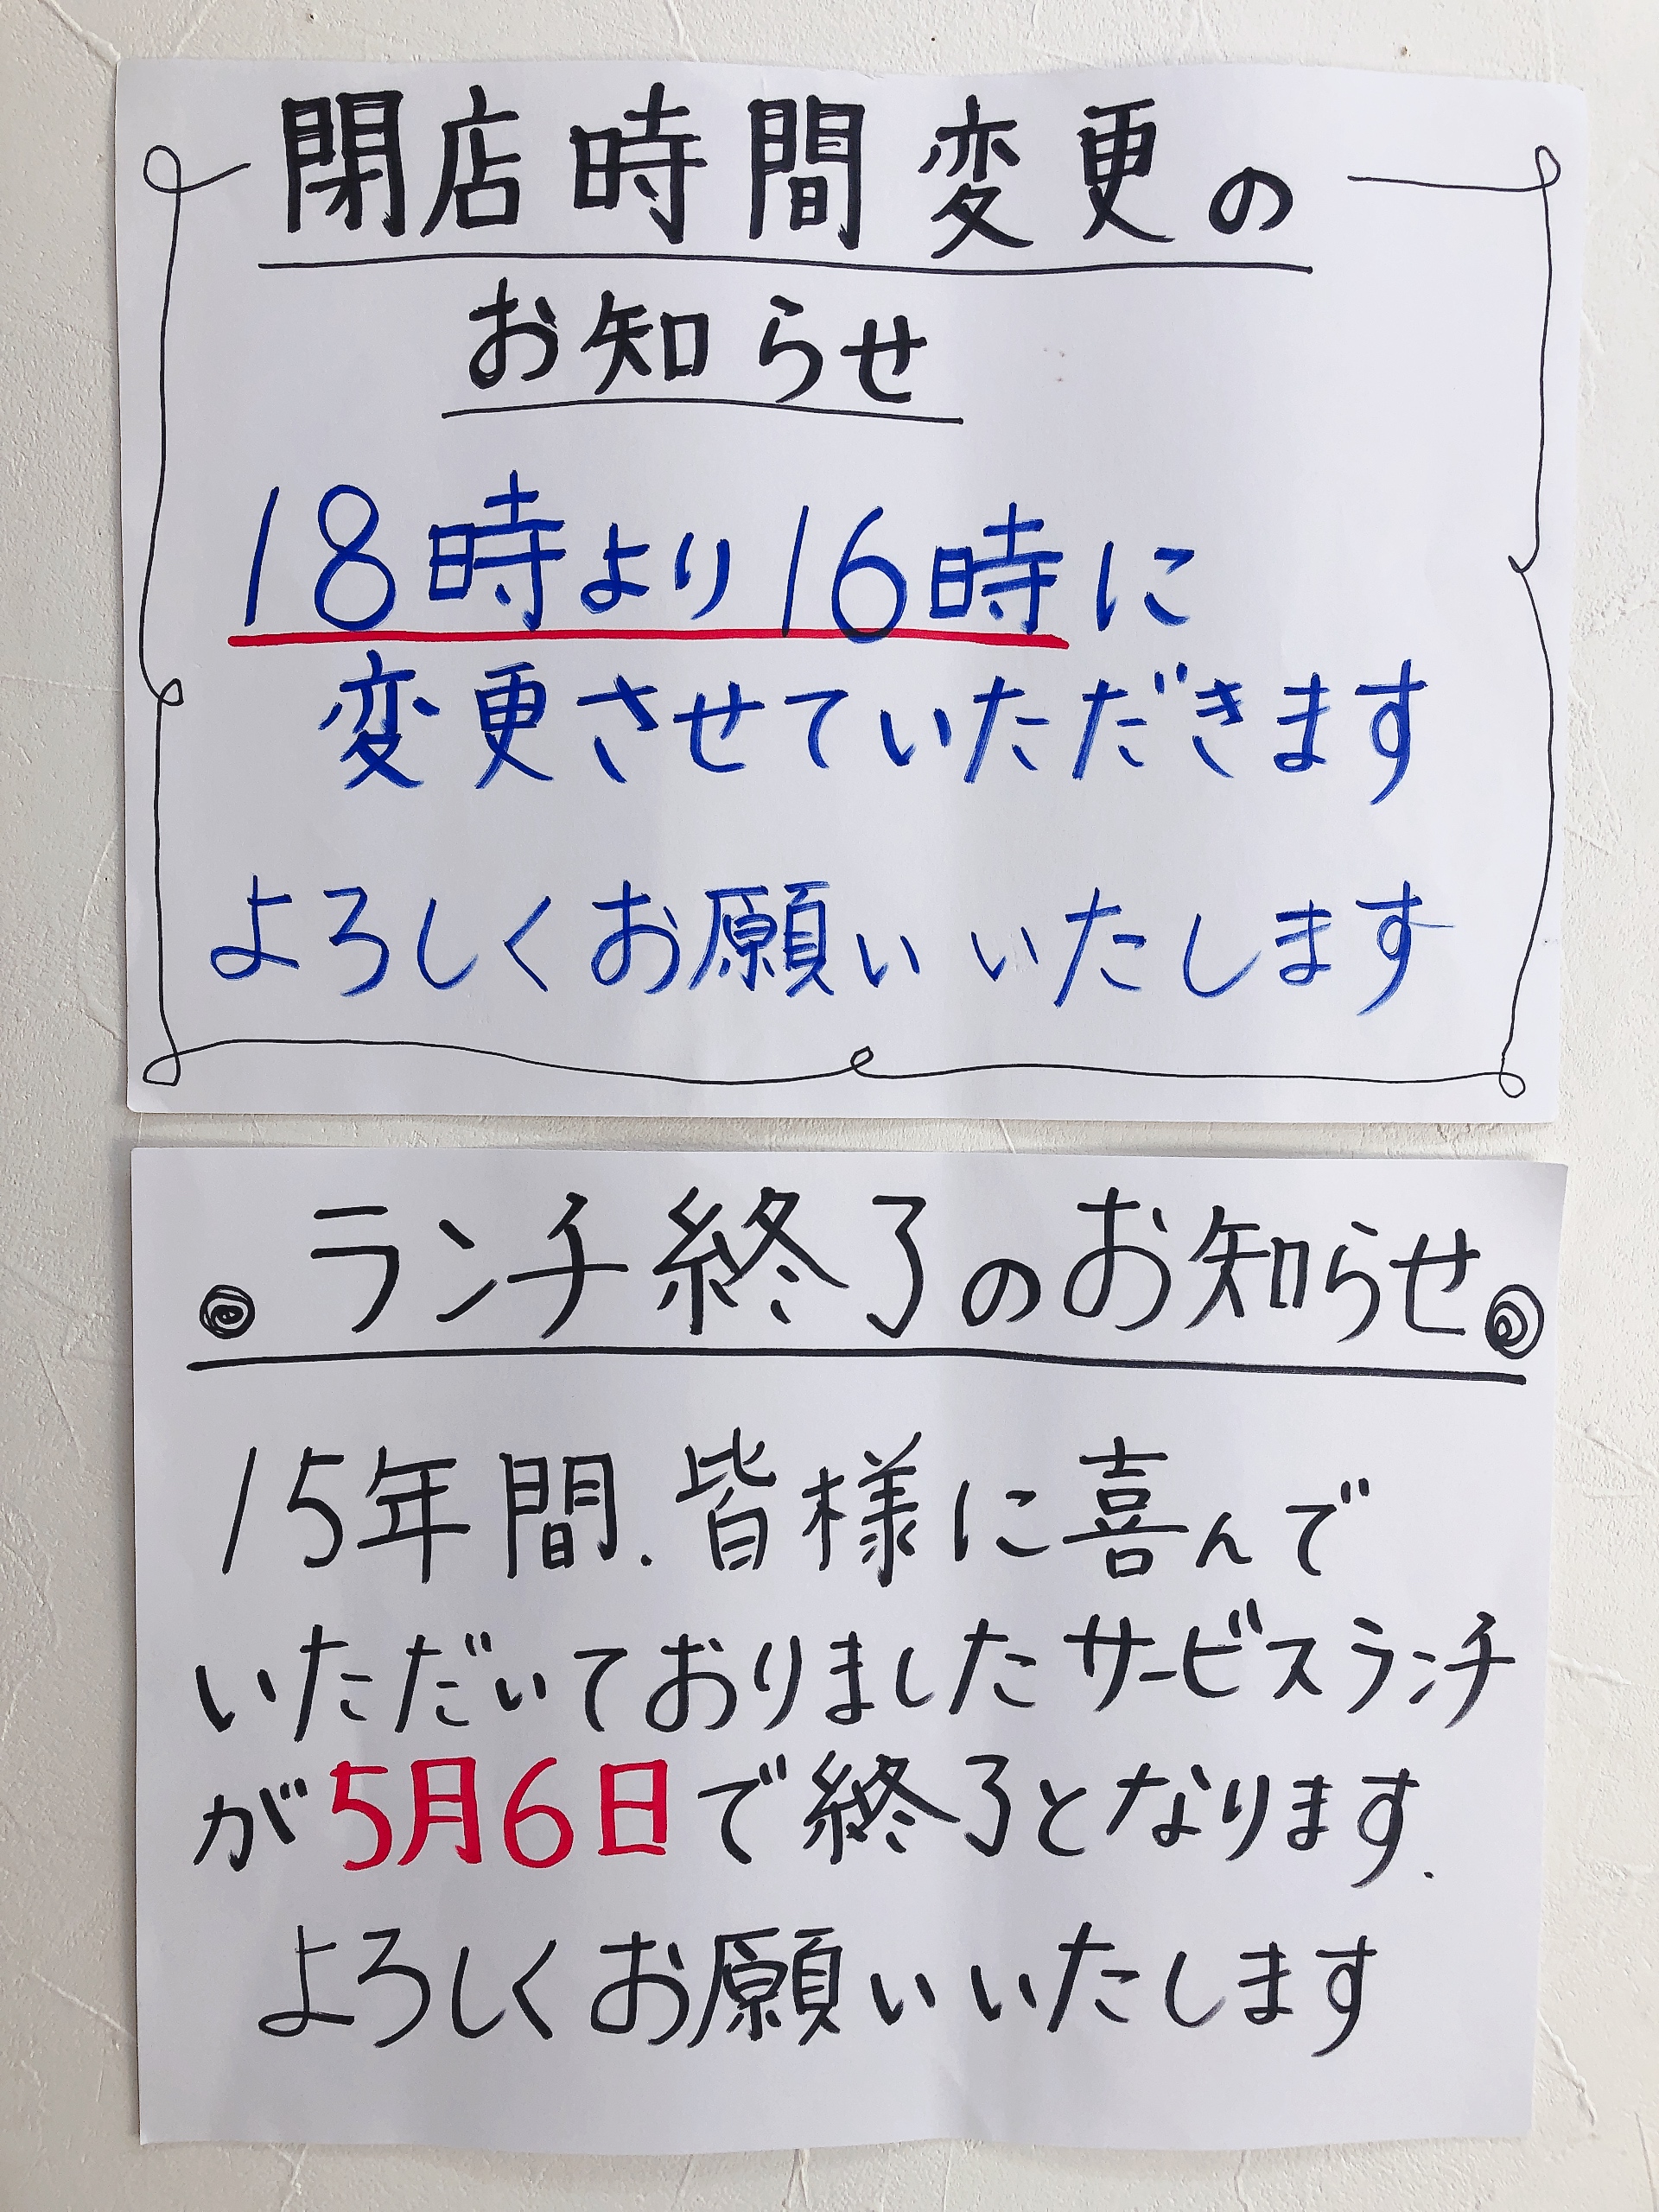 閉店時間変更の
お知らせ
18時より16時に
変更させていただきます
よろしくお願いいたします
ランチ終了のお知らせ
15年間.皆様に喜んで
いただいておりましたサービスランチ
が5月6日で終了となります.
よろしくお願いいたします